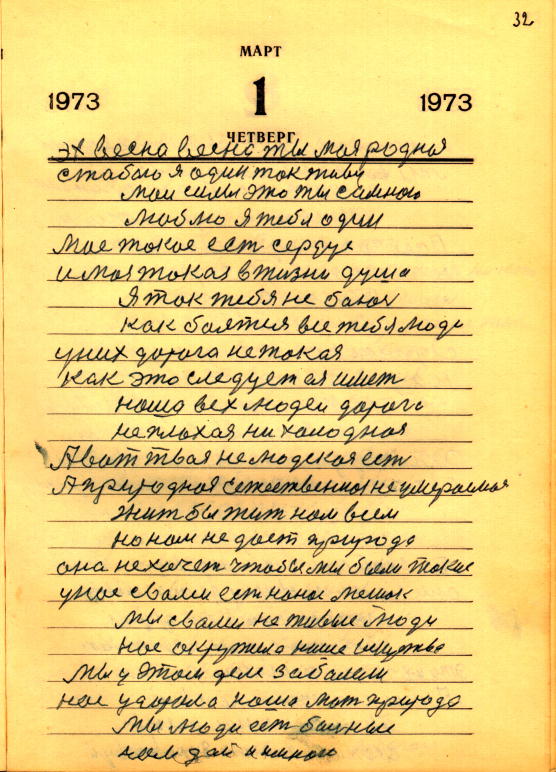 32
МАРТ
1973 1 1973
ЧЕТВЕРГ
Эх весна весна ты моя родная
стабою я один так живу
мои силы это ты самною
люблю я тебя один
Мое токое ест сердце
и моя токая в жизни душа
Я так тебя не баюс
как боятся все тебя люди
уних дорога не токая
как это следует ая ишет
наша всех людей дорога
неплохая ни халодная
А вот твая не людская ест
А природная естественная не умераемая
жит бы жит нам всем
но нам не дает природа
она нехочет чтобы мы были токие
унас свами ест
мы свами не живые люди
нас окружила наше
мы у этом деле забалели
нас ударила наша мат природа
мы люди ест болные
нам дай